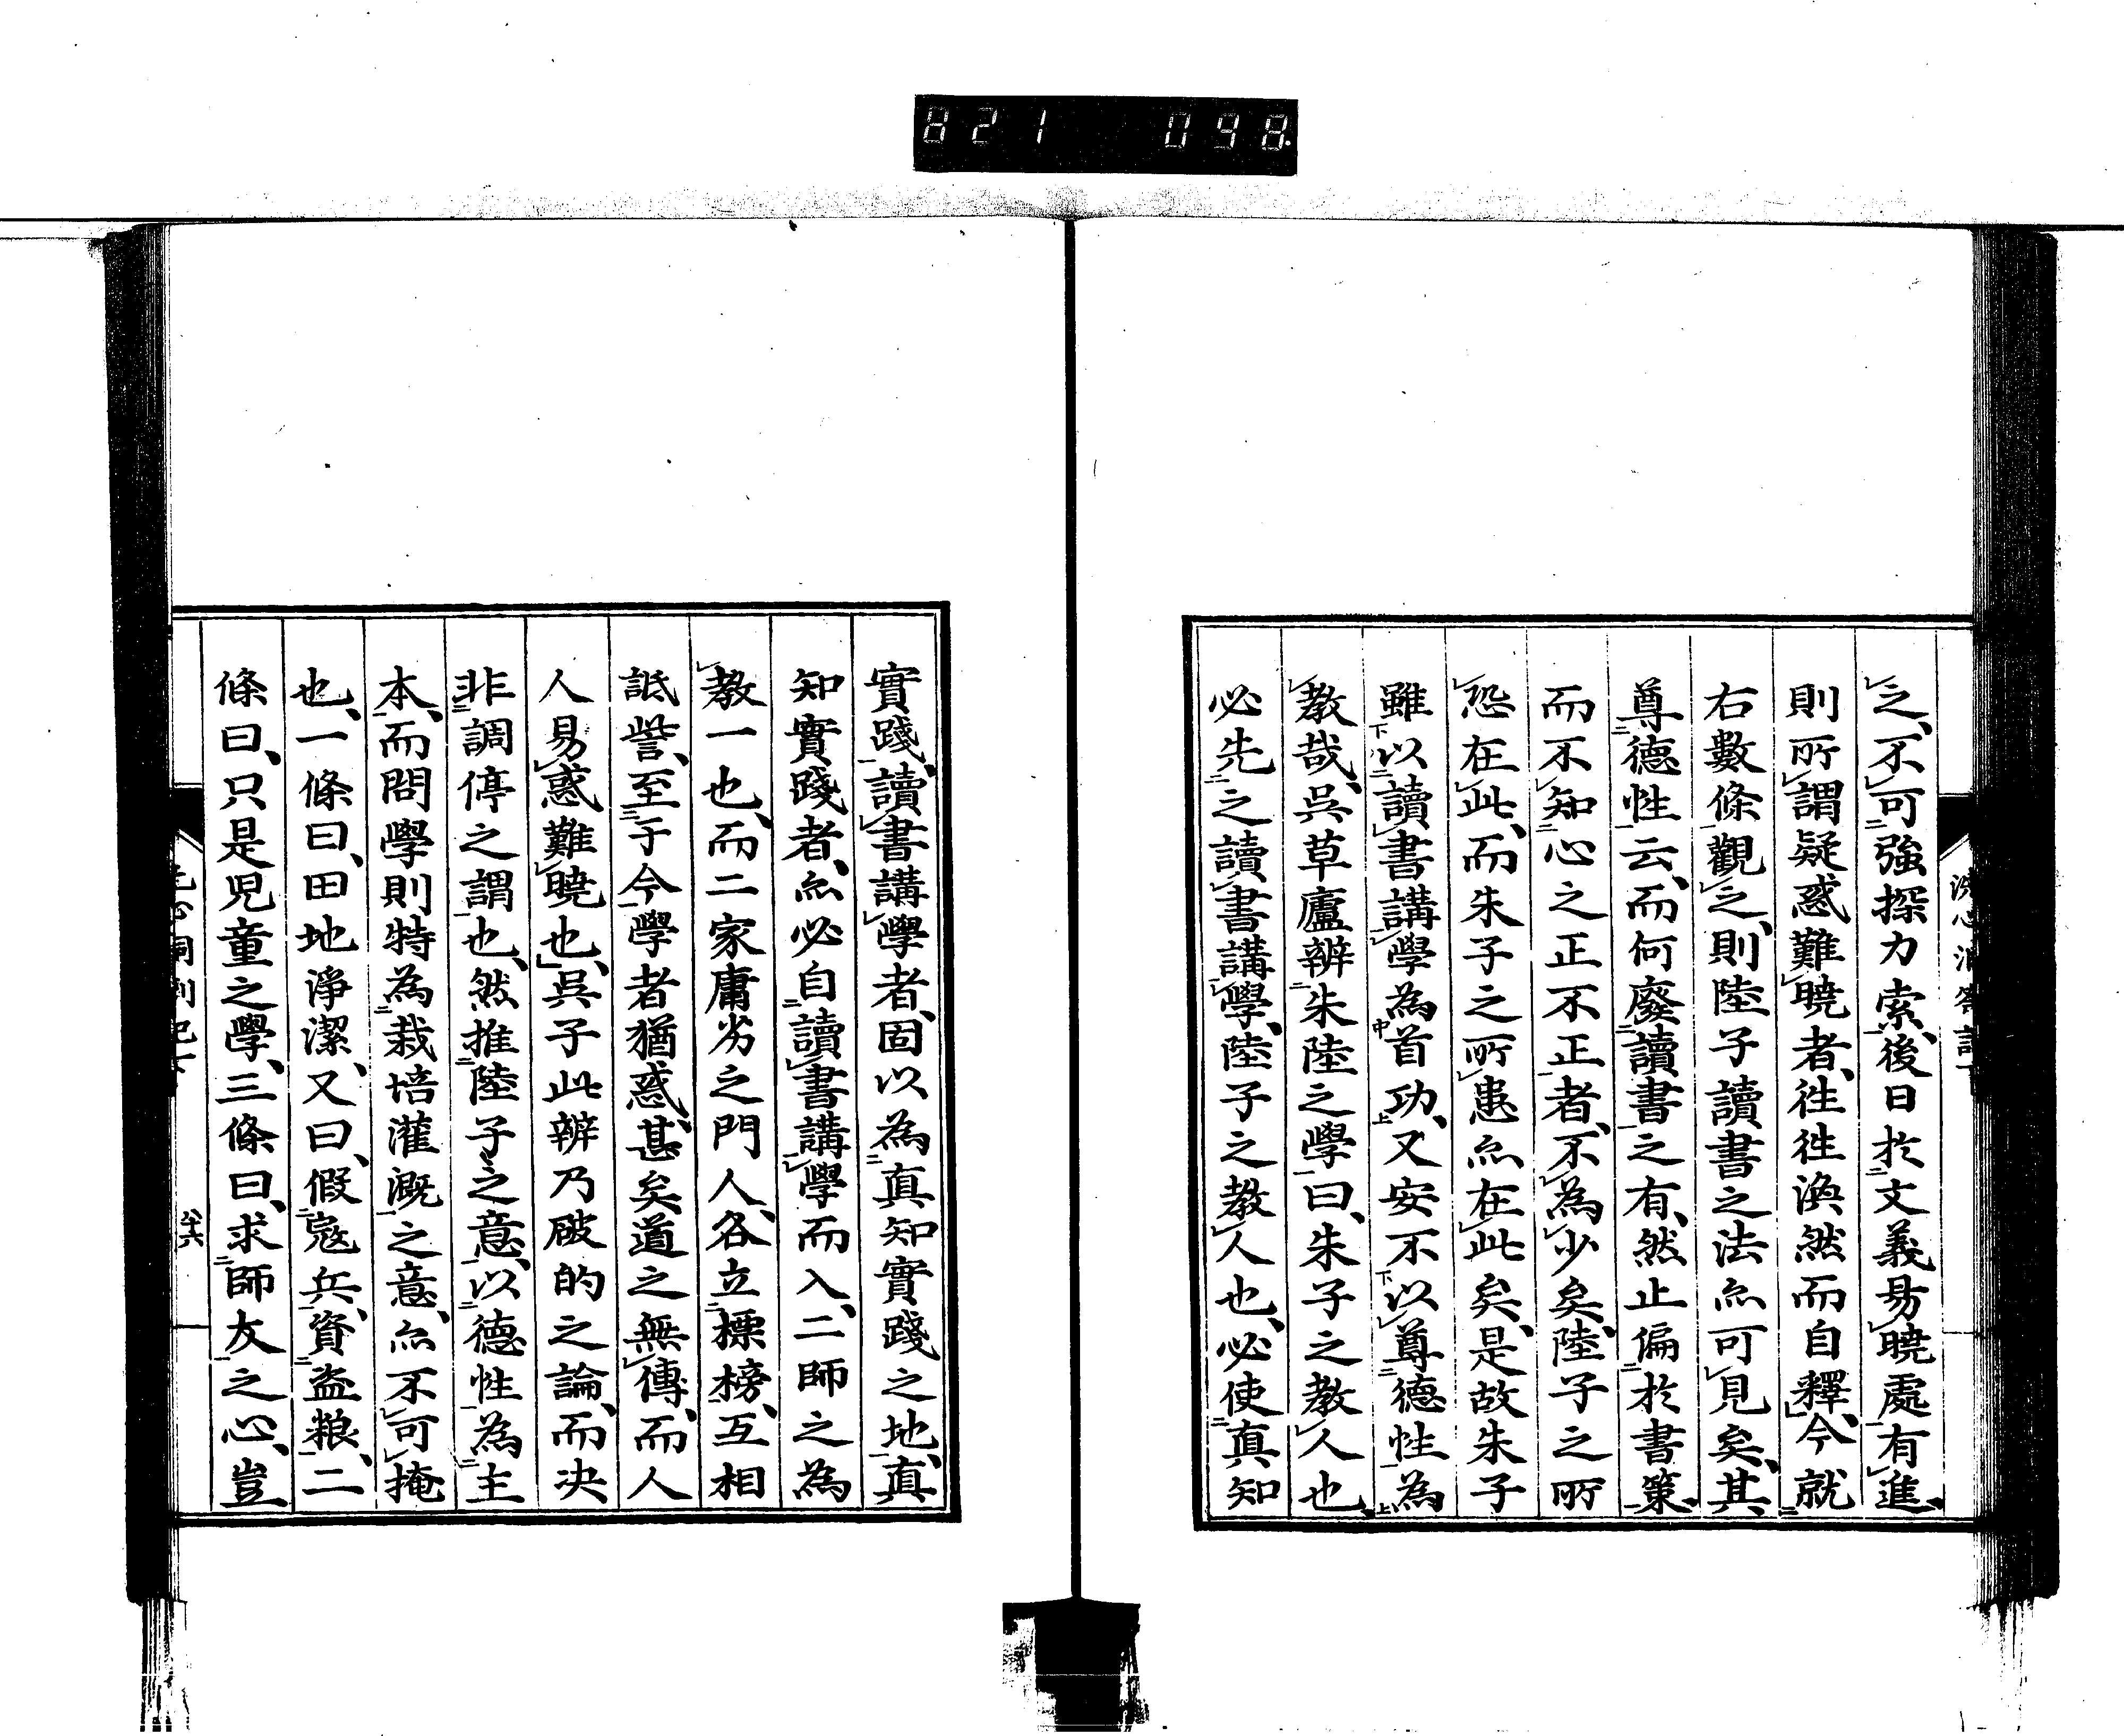 821 098
之、不可強探力索、後日於文義易曉處有進、
則所謂疑惑難曉者、徃徃渙然而自釋、今就
右數條觀之、則陸子讀書之法亦可見矣、其
尊德性云、而何廢讀書之有、然止偏於書策、
而不知心之正不正者、不為少矣、陸子之所
恐在此、而朱子之所患亦在此矣、是故朱子
雖以讀書講學為首功、又安不以尊德性為
教哉、吳草廬辨朱陸之學曰、朱子之教人也、
必先之讀書講學、陸子之教人也、必使真知
實踐、讀書講學者、固以為真知實踐之地、真
知實踐者、亦必自讀書講學而入、二師之為
教一也、而二家庸劣之門人、各立標榜、互相
詆訾、至于今學者猶惑、甚矣道之無傳、而人
人易惑難曉也、吳子此辨乃破的之論、而决
非調停之謂也、然推陸子之意、以德性為主
本、而問學則特為栽培灌溉之意、亦不可掩
也、一條曰、田地淨潔、又曰、假寇兵、資盜粮、二
條曰、只是児童之學、三條曰、求師友之心、豈